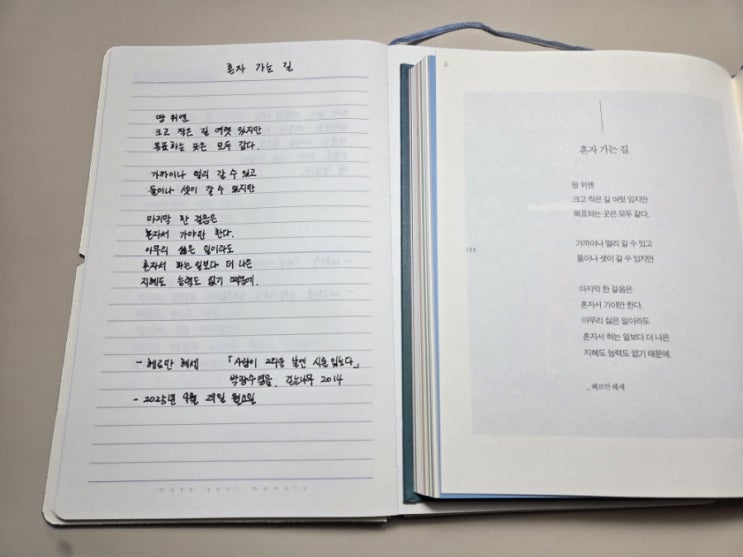 혼자 가는 길
땅 위엔
크고 작은 길 여럿 있지만
목표하는 곳은 모두 같다.
가까이나 멀리 갈 수 있고
둘이나 셋이 갈 수 있지만
마지막 한 걸음은
혼자서 가야만 한다.
아무리 싫은 일이라도
혼자서 하는 일보다 더 나은
지혜도 능력도 없기 때문에.
- 헤르만 헤세 「사람이 그리운 날엔 시를 읽는다」
박광수 엮음. 걷는나무 2014
- 2025년 9월 29일 월요일
make your memory
혼자 가는 길
땅 위엔
크고 작은 길 여럿 있지만
목표하는 곳은 모두 같다.
가까이나 멀리 갈 수 있고
둘이나 셋이 갈 수 있지만
마지막 한 걸음은
혼자서 가야만 한다.
아무리 싫은 일이라도
혼자서 하는 일보다 더 나은
지혜도 능력도 없기 때문에.
_헤르만 헤세